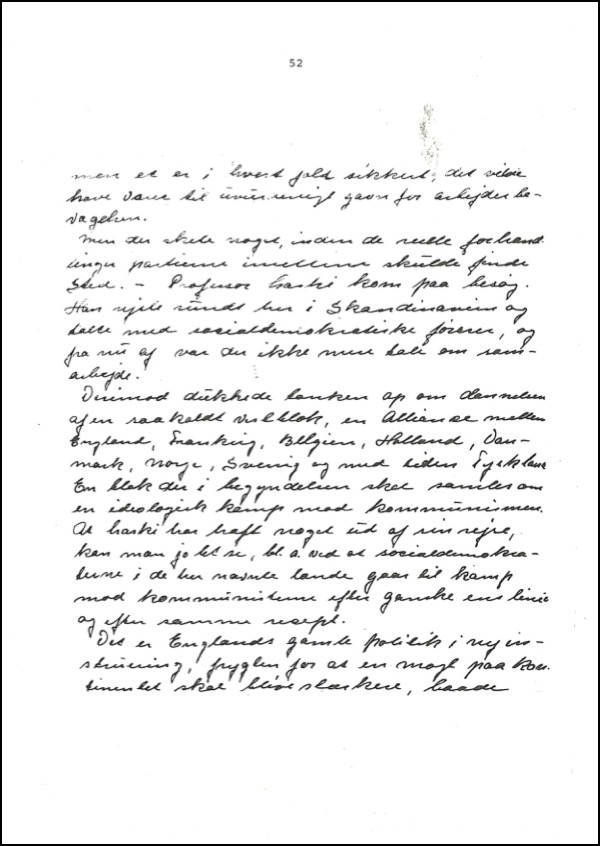 52
men et er i hvert fald sikkert, det vilde
have været til uvurerligt gavn for arbejderbe-
vægelsen.
Men der skete noget, inden de reelle forhand-
linger partierne imellem skulde finde
Sted. – Professor Laski kom paa besøg.
Han rejste rundt her i Skandinavien og
talte med socialdemokratiske førerer, og
fra nu af var der ikke mere tale om sam-
arbejde.
Derimod dukkede tanken op om dannelsen
af en saakaldt vestblok, en Alliance mellem
England, Frankrig, Belgien, Holland, Dan-
mark, Norge, Sverrig og med tiden Tyskland
En blok der i begyndelsen skal samles om
en ideologisk kamp mod kommunismen.
At Laski har haft noget ud af sin rejse,
kan man jo let se, bl.a. ved at socialdemokra-
terne i de her nævnte lande gaar til kamp
mod kommunisterne efter ganske ens linie
og efter samme recept.
Det er Englands gamle politik i ny in-
struering, frygten for at en magt paa kon-
tinentet skal blive stærkere, baade